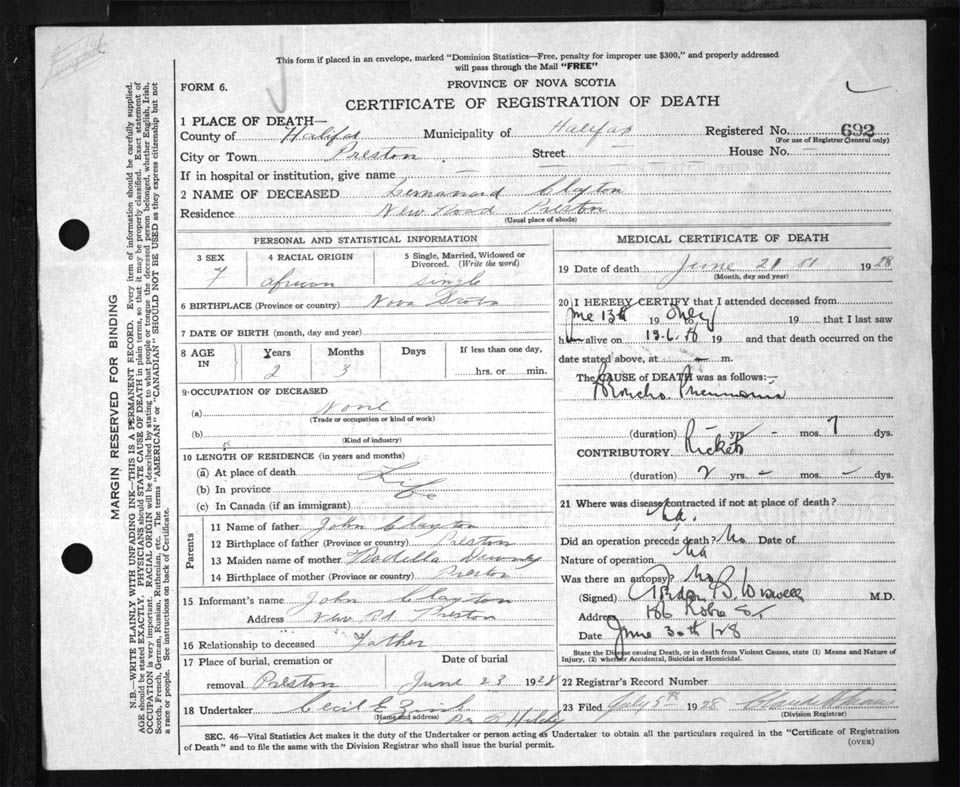 This form if placed in an envelope, marked "Dominion Statistics—Free, penalty for improper use $300," and properly addressed
will pass through the Mail "FREE"
FORM 6.
PROVINCE OF NOVA SCOTIA
CERTIFICATE OF REGISTRATION OF DEATH
1 PLACE OF DEATH—
County of Halifax Municipality of Halifax Registered No. 692
(For use of Registrar General only)
City or Town Preston Street — House No. —
If in hospital or institution, give name —
2 NAME OF DECEASED Clayton
Residence New Road Preston
(Usual place of abode)
PERSONAL AND STATISTICAL INFORMATION
3 SEX 4 RACIAL ORIGIN 5 Single, Married, Widowed or Divorced. (Write the word)
African single
6 BIRTHPLACE (Province or country) Nova Scotia
7 DATE OF BIRTH (month, day and year)
8 AGE IN Years Months Days If less than one day,
2 3 hrs. or min.
9 OCCUPATION OF DECEASED
(a) None
(Trade or occupation or kind of work)
(b)
(Kind of industry)
10 LENGTH OF RESIDENCE (in years and months)
(a) At place of death
(b) In province Life
(c) In Canada (if an immigrant)
Parents
11 Name of father John Clayton
12 Birthplace of father (Province or country) Preston
13 Maiden name of mother
14 Birthplace of mother (Province or country) Preston
15 Informant's name John Clayton
Address New Rd. Preston
16 Relationship to deceased Father
17 Place of burial, cremation or Date of burial
removal Preston June 23 1928
18 Undertaker Cecil E.
(Name and address)
MEDICAL CERTIFICATE OF DEATH
19 Date of death June 21 st 1928
(Month, day and year)
20 I HEREBY CERTIFY that I attended deceased from
June 13th 19 only to 19 that I last saw
h alive on 13.6. 19 and that death occurred on the
date stated above, at — m.
The CAUSE of DEATH was as follows:—
Broncho Pneumonia
(duration) — yrs. - mos. 7 dys.
CONTRIBUTORY Rickets
(duration) 2 yrs. — mos. — dys.
21 Where was disease contracted if not at place of death?
Did an operation precede death? No Date of
Nature of operation
Was there an autopsy? No
(Signed) M.D.
Address Robie St.
Date June 30th /28
State the Disease causing Death, or in death from Violent Causes, state (1) Means and Nature of
Injury, (2) whether Accidental, Suicidal or Homicidal.
22 Registrar's Record Number
23 Filed July 5th 1928
(Division Registrar)
SEC. 46—Vital Statistics Act makes it the duty of the Undertaker or person acting as Undertaker to obtain all the particulars required in the "Certificate of Registration
of Death" and to file the same with the Division Registrar who shall issue the burial permit.
(OVER)
MARGIN RESERVED FOR BINDING
N.B.—WRITE PLAINLY WITH UNFADING INK—THIS IS A PERMANENT RECORD. Every item of information should be carefully supplied.
AGE should be stated EXACTLY. PHYSICIANS should STATE CAUSE OF DEATH in plain terms, so that it may be properly classified. Exact statement of
OCCUPATION is very important. RACIAL ORIGIN will be described by stating to what people or tongue the deceased person belonged, whether English, Irish,
Scotch, French, German, Russian, Ruthenian, etc. The terms "AMERICAN" or "CANADIAN" SHOULD NOT BE USED as they express citizenship but not
a race or people. See instructions on back of Certificate.